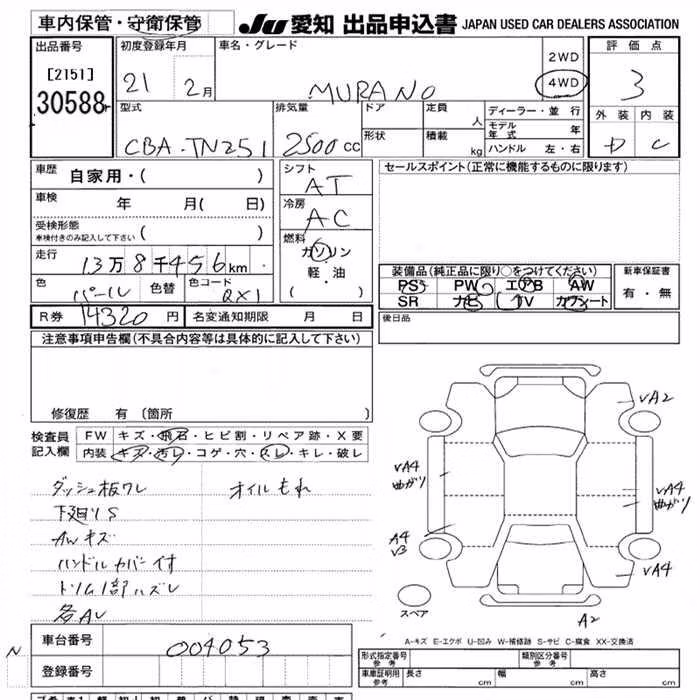 車内保管・守衛保管 JU 愛知 出品申込書 JAPAN USED CAR DEALERS ASSOCIATION
出品番号 初度登録年月 車名・グレード 2WD 評価点
[2151] 21 2月 MURANO 4WD 3
30588 型式 排気量 ドア 定員 人 ディーラー・並行 外装 内装
モデル年式 年
CBA-TN251 2500cc 形状 積載 kg ハンドル 左・右 D C
車歴 自家用・( ) シフト AT セールスポイント(正常に機能するものに限ります)
車検 年 月( 日) 冷房 AC
受検形態 ( )
車検付きのみ記入して下さい
燃料
走行 13万8千456km ガソリン
軽・油
( )
装備品(純正品に限り○をつけてください) 新車保証書
色 パール 色替 色コード QX1 PS PW エアB AW 有・無
SR ナビ TV カワシート
R券 14320円 名変通知期限 月 日 後日品
注意事項申告欄(不具合内容等は具体的に記入して下さい)
修復歴 有(箇所 )
検査員 FW キズ・飛石・ヒビ割・リペア跡・X要
記入欄 内装 キズ・汚レ・コゲ・穴・スレ・キレ・破レ
ダッシュ板ワレ オイルもれ
下廻りS
AWキズ
ハンドルカバー付
トリム1部ハズレ
各AU
VA2
VA4
曲がり
VA4
曲がり
A4
V3
VA4
スペア
A2
A-キズ E-エクボ U-凹み W-補修跡 S-サビ C-腐食 XX-交換済
N 車台番号 004053
登録番号
形式指定番号 参考 類別区分番号 参考
車庫証明用 参考 長さ cm 幅 cm 高さ cm